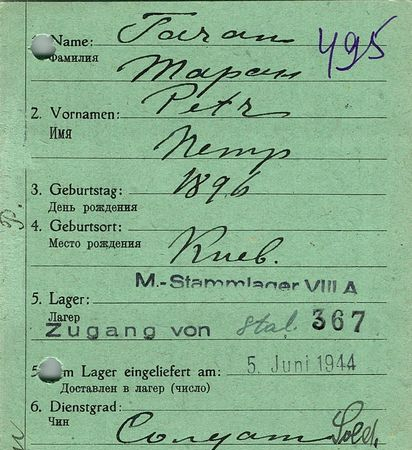 Name: Taran
495
Фамилия
Таран
2. Vornamen: Petr
Имя
Петр
3. Geburtstag: 1896
День рождения
4. Geburtsort:
Место рождения
Киев.
M.-Stammlager VIII A
5. Lager:
Лагер
Zugang von Stal. 367
5 m Lager eingeliefert am: 5. Juni 1944
Доставлен в лагер (число)
6. Dienstgrad:
Чин
Солдат Sold.
P.